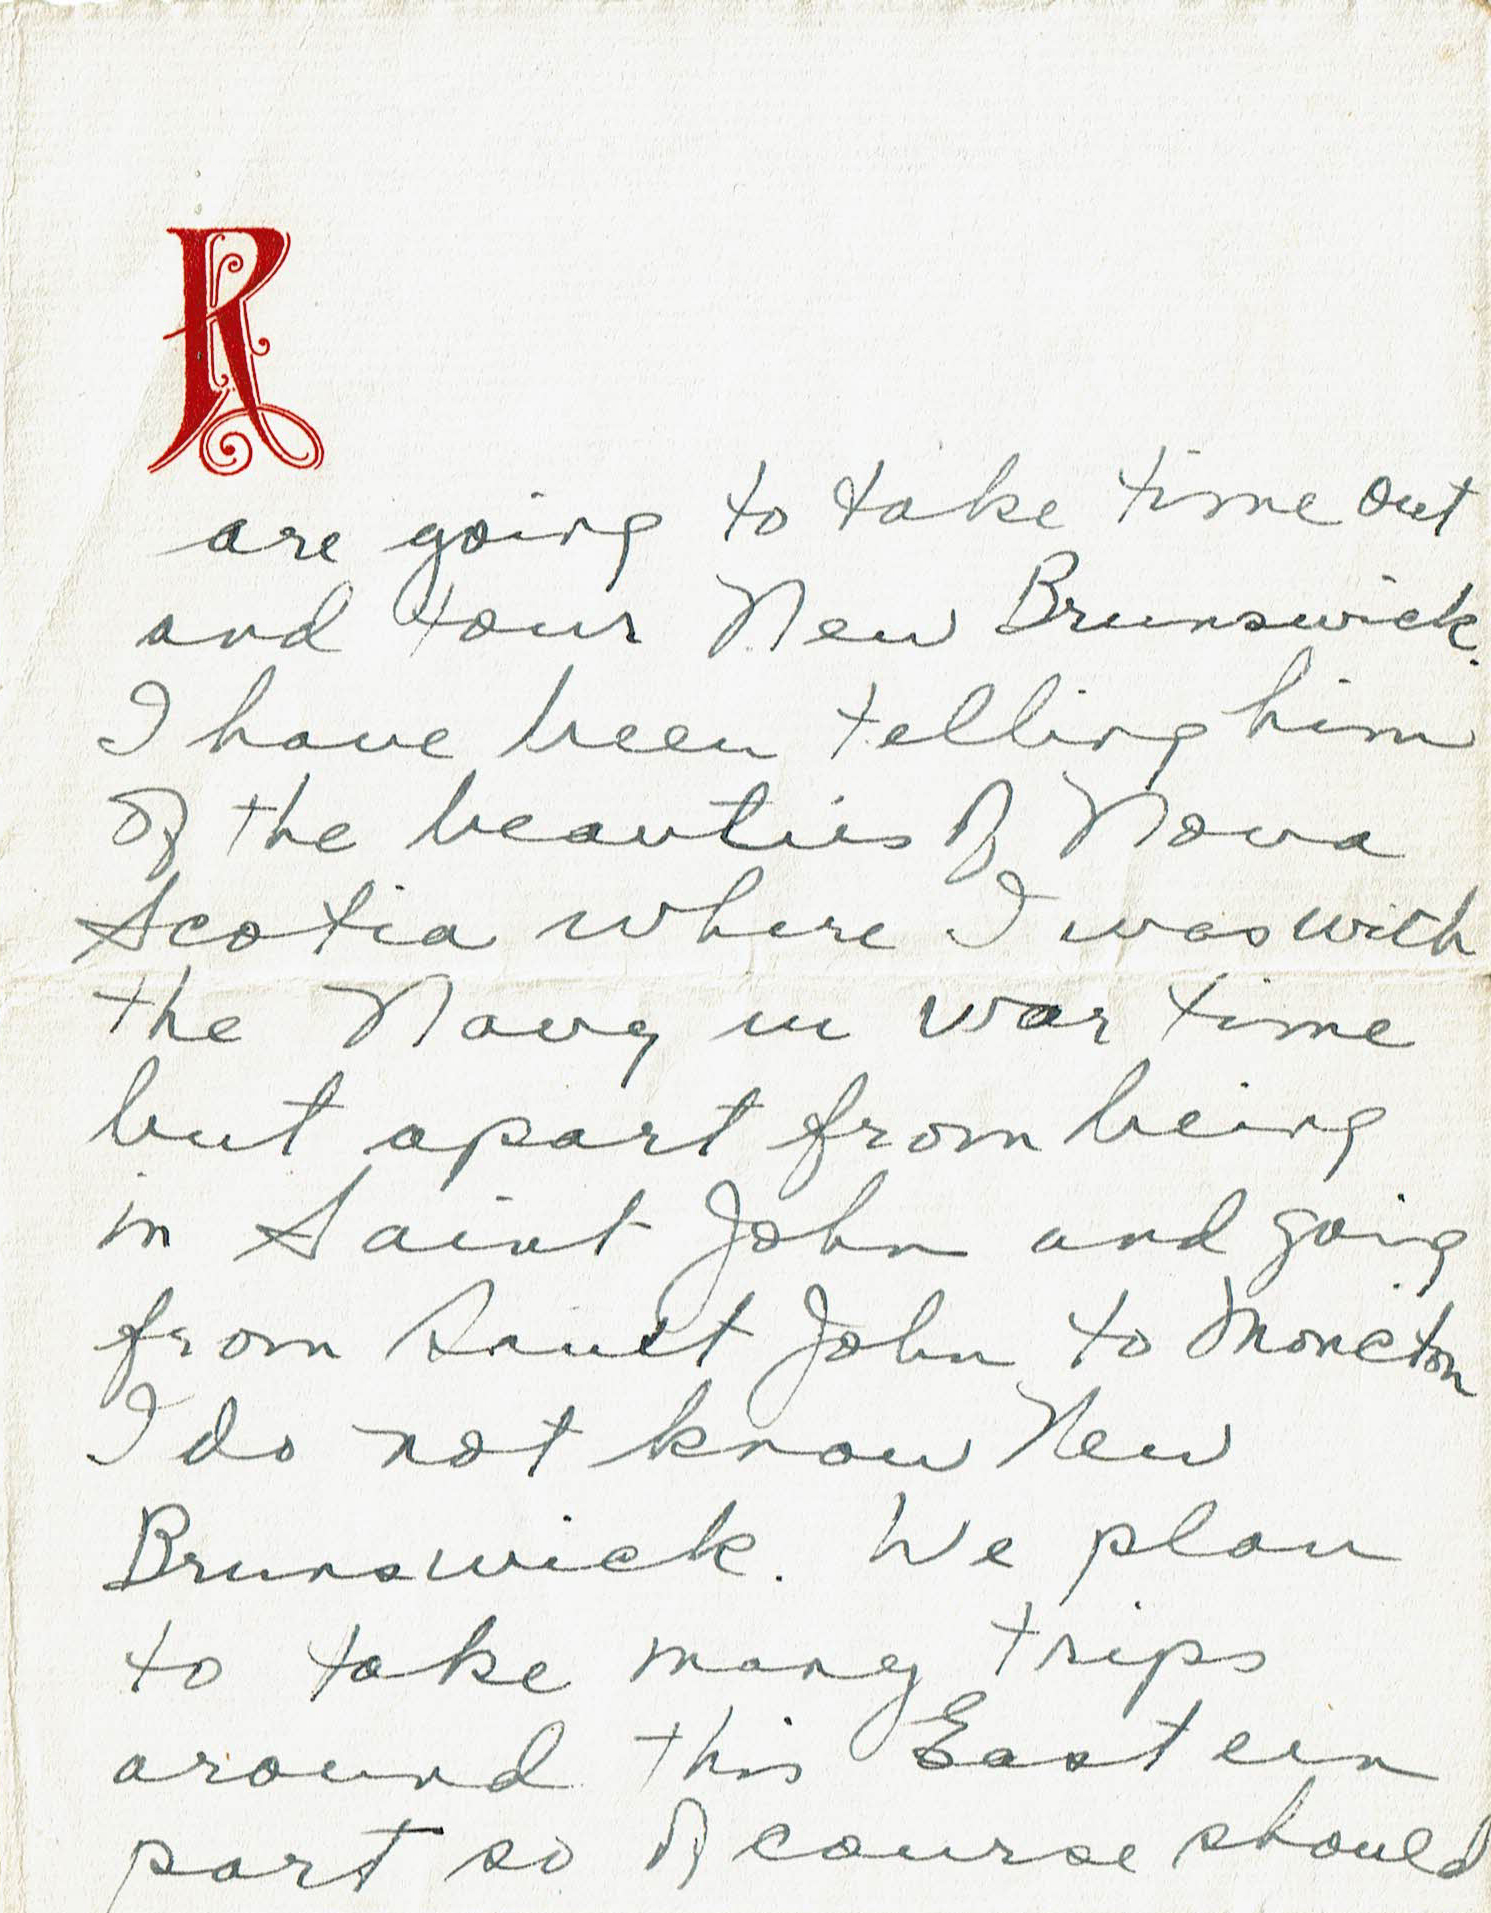 R
are going to take time out
and tour New Brunswick.
I have been telling him
of the beauties of Nova
Scotia where I was with
the Navy in war time
but apart from being
in Saint John and going
from Saint John to Moncton
I do not know New
Brunswick. We plan
to take many trips
around this Eastern
part so of course should